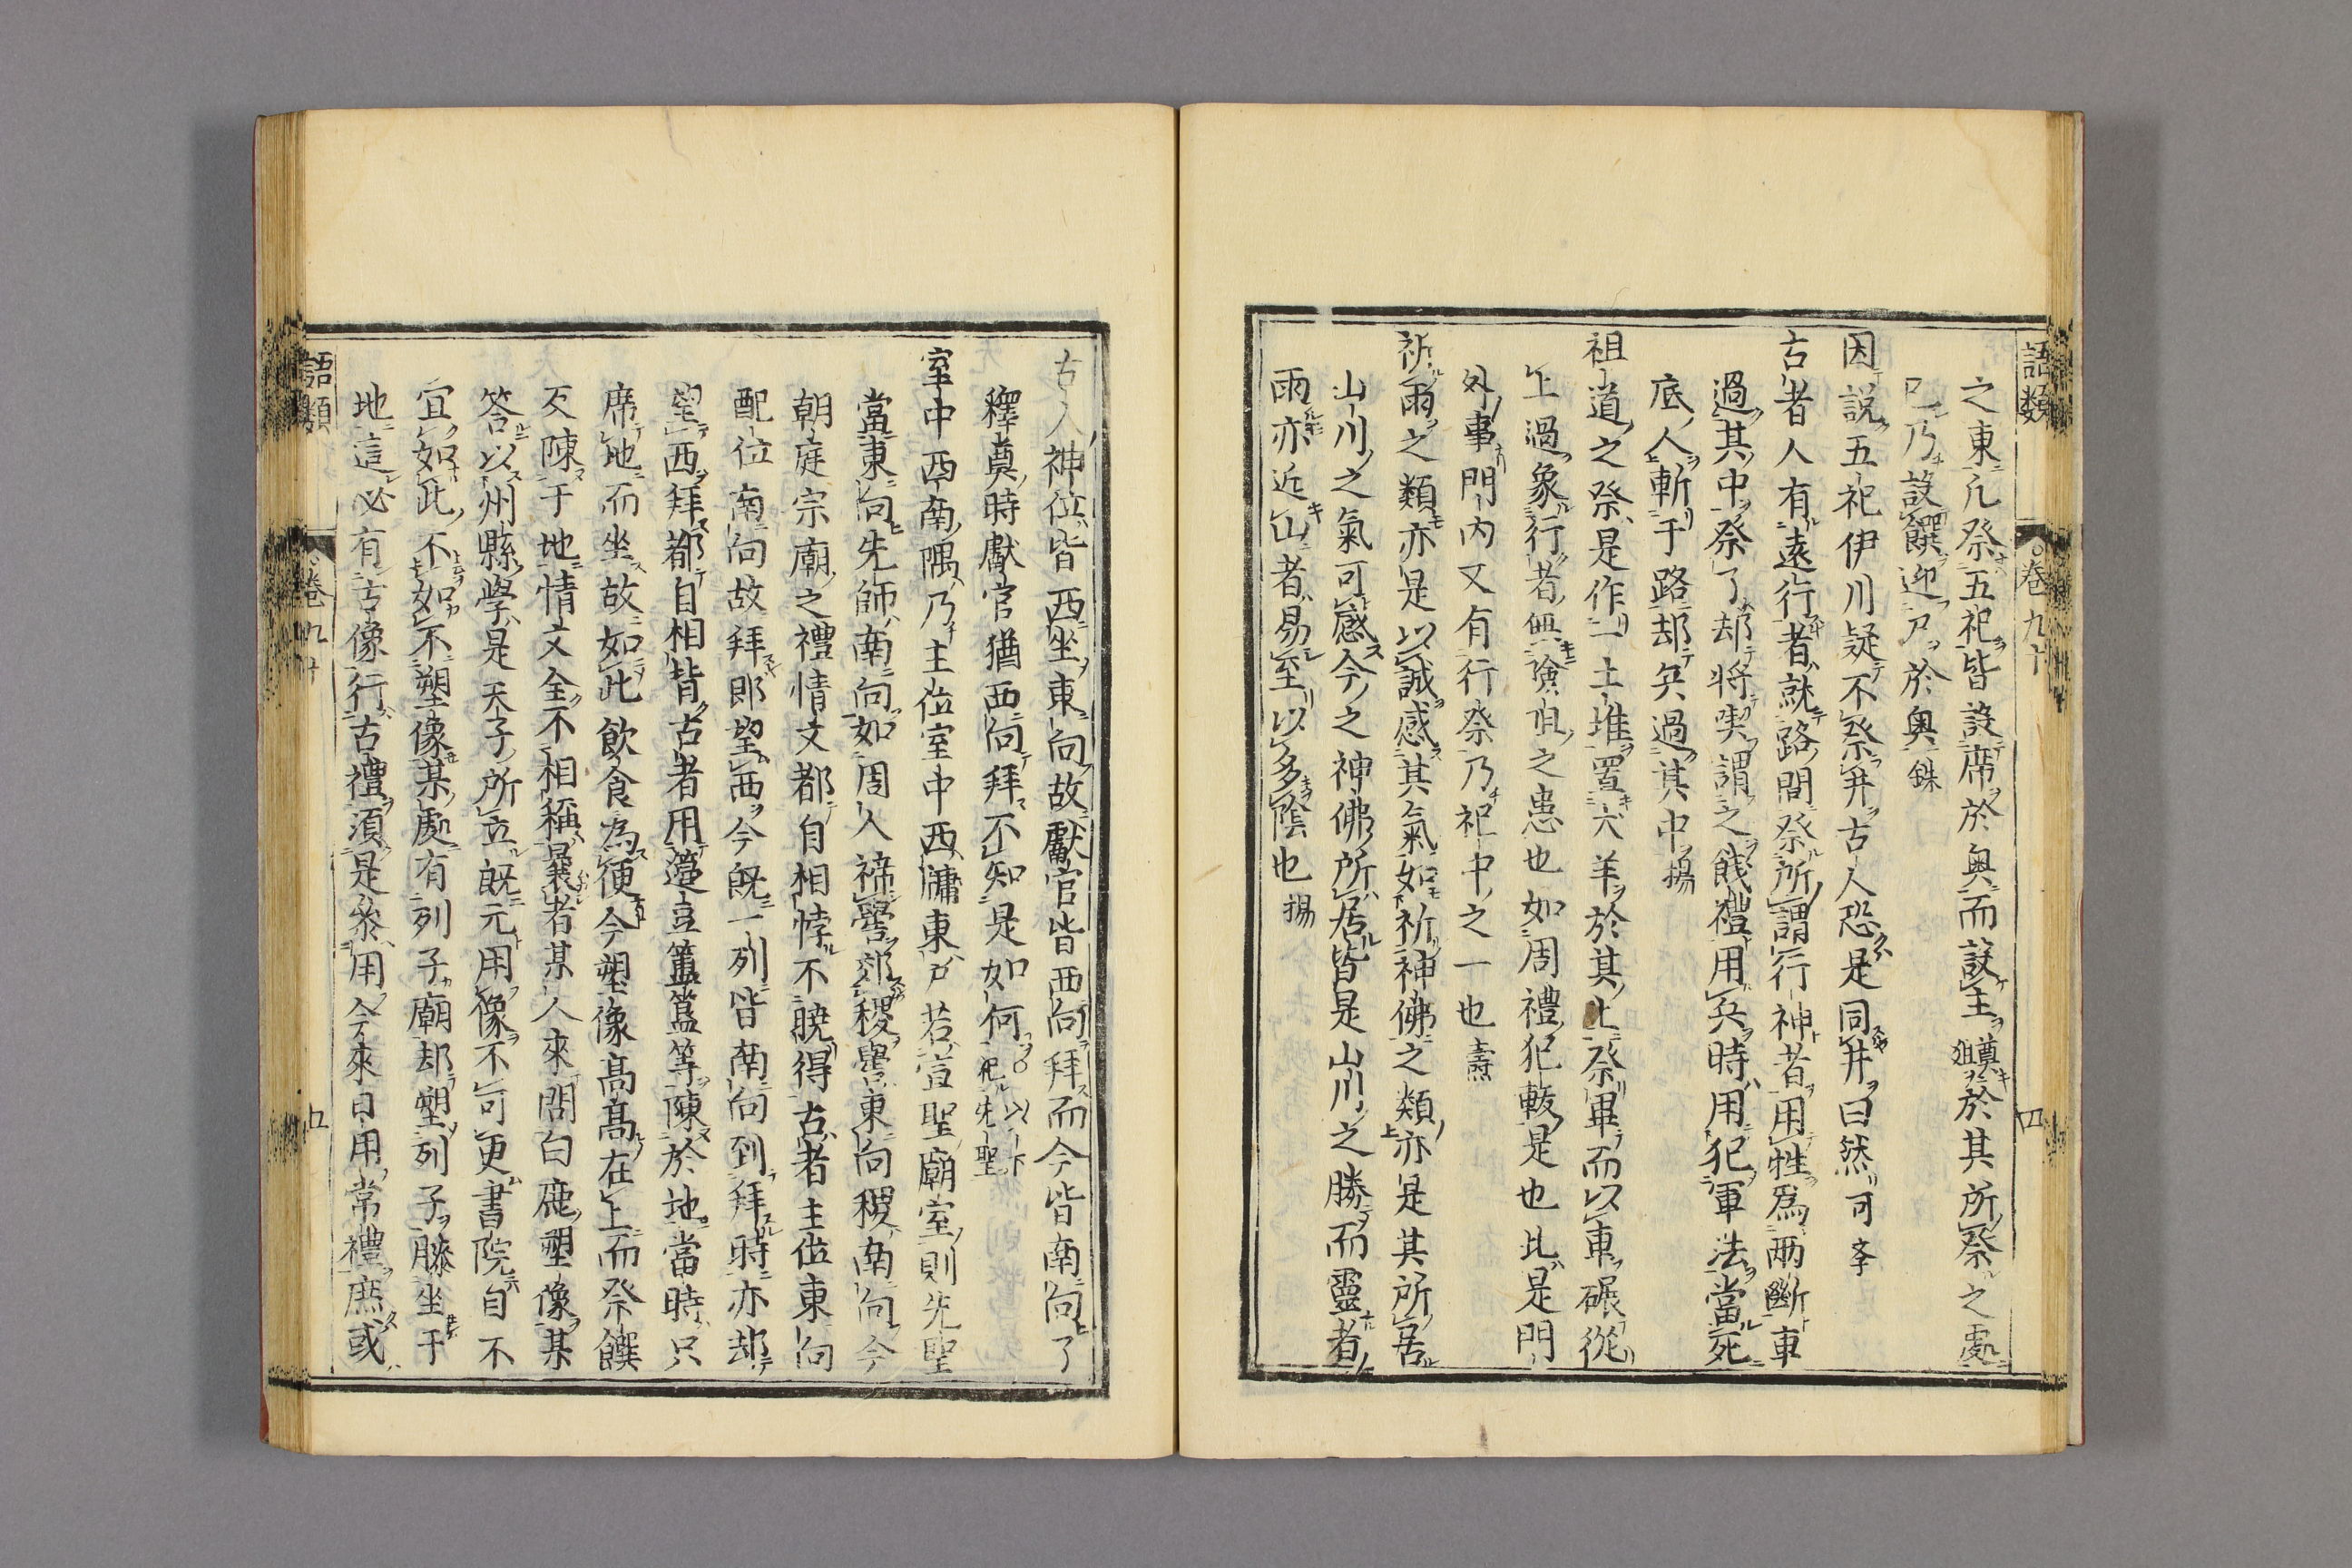 語類
卷九十
四
之東凡祭五祀皆設席於奥而設主奠俎於其所祭之處
已乃設饌迎尸於奥銖
因說五祀伊川疑不祭井古人恐是同井曰然可孝
古者人有遠行者就路間祭所謂行神者用牲爲兩斷車
過其中祭了却將喫謂之餞禮用兵時用犯軍法當死
底人斬于路却兵過其中揚
祖道之祭是作一土堆置犬羊於其上祭畢而以車碾從
上過象行者無險阻之患也如周禮犯軷是也此是門
外事門内又有行祭乃祀中之一也燾
祈雨之類亦是以誠感其氣如祈神佛之類亦是其所居
山川之氣可感今之神佛所居皆是山川之勝而靈者
雨亦近山者易至以多陰也揚
古人神位皆西坐東向故獻官皆西向拜而今皆南向了
釋奠時獻官猶西向拜不知是如何○以下祀先聖
室中西南隅乃主位室中西牖東戸若宣聖廟室則先聖
當東向先師南向如周人禘嚳郊稷嚳東向稷南向今
朝庭宗廟之禮情文都自相悖不曉得古者主位東向
配位南向故拜即望西今既一列皆南向到拜時亦却
望西拜都自相背古者用籩豆簠簋等陳於地當時只
席地而坐故如此飲食為便今塑像高高在上而祭饌
反陳于地情文全不相稱曩者某人來問白鹿塑像某
答以州縣學是天子所立既元用像不可更書院自不
宜如此不如不塑像某處有列子廟却塑列子膝坐于
地這必有古像行古禮須是參用今來日用常禮庶或
語類
卷九十
五